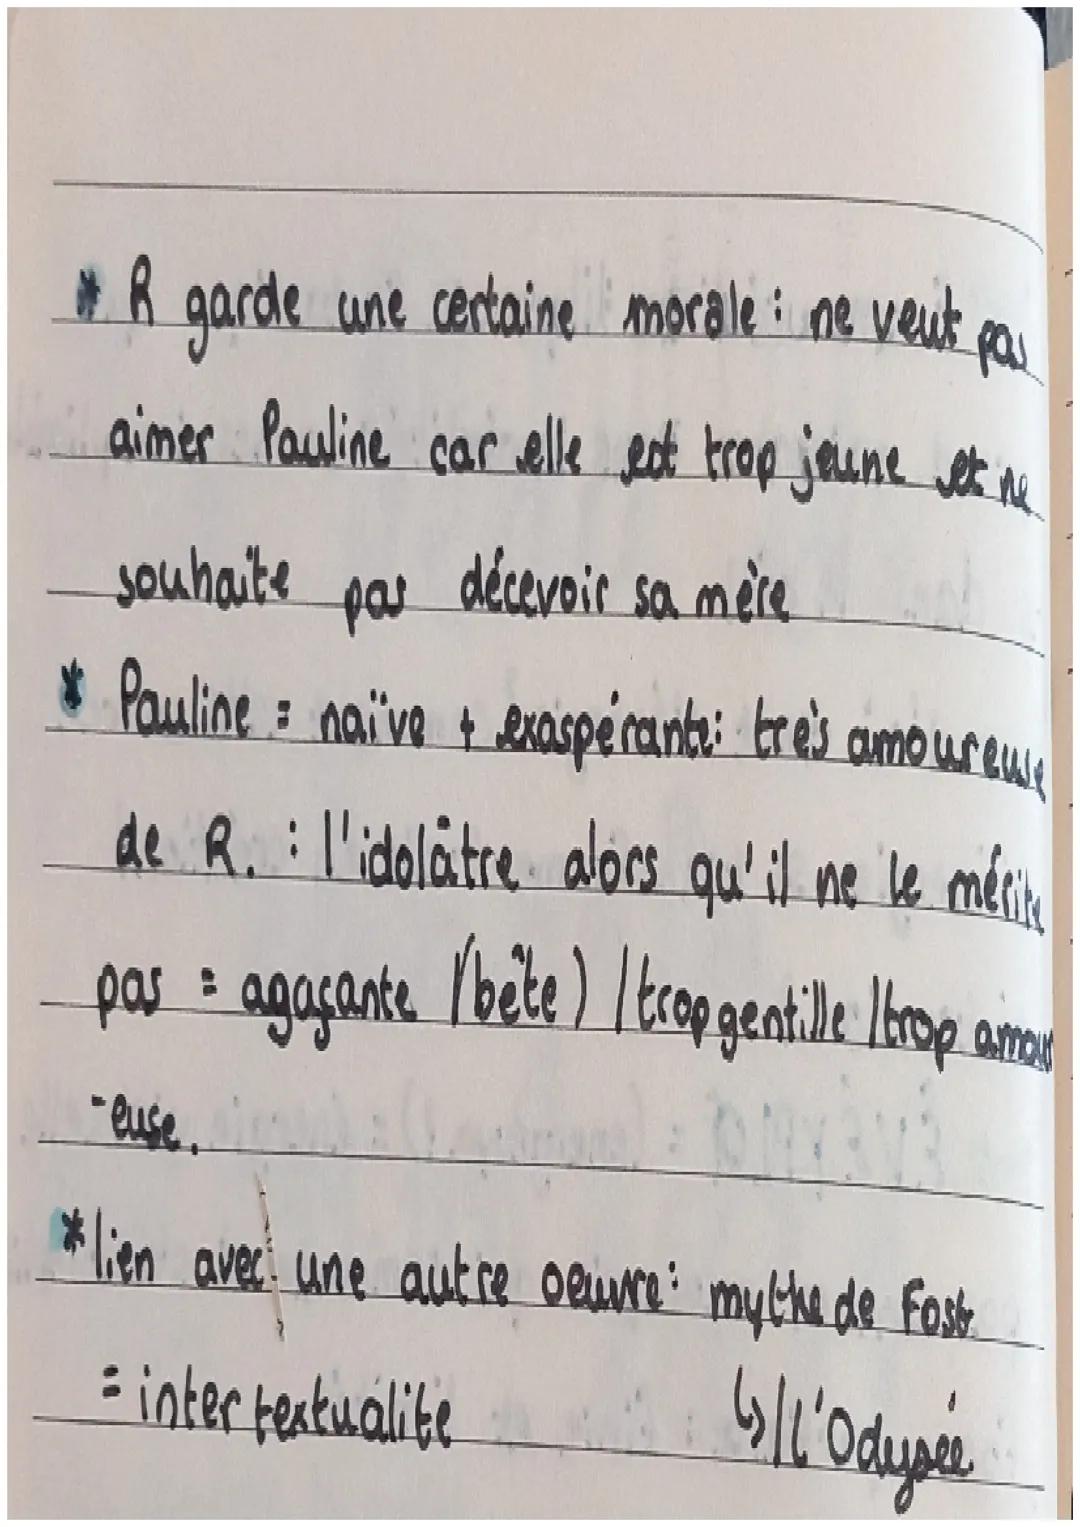 * R garde une certaine morale : ne veut pas
aimer Pauline car elle est trop jeune et ne
souhaite pas décevoir sa mère
* Pauline = naïve + exaspérante : très amoureuse
de R. : l'idolâtre alors qu'il ne le mérite
pas = agaçante /bête) / trop gentille / trop amour
-euse.
* lien avec une autre oeuvre : mythe de Fost
= intertextualité ↳ / L'Odysée